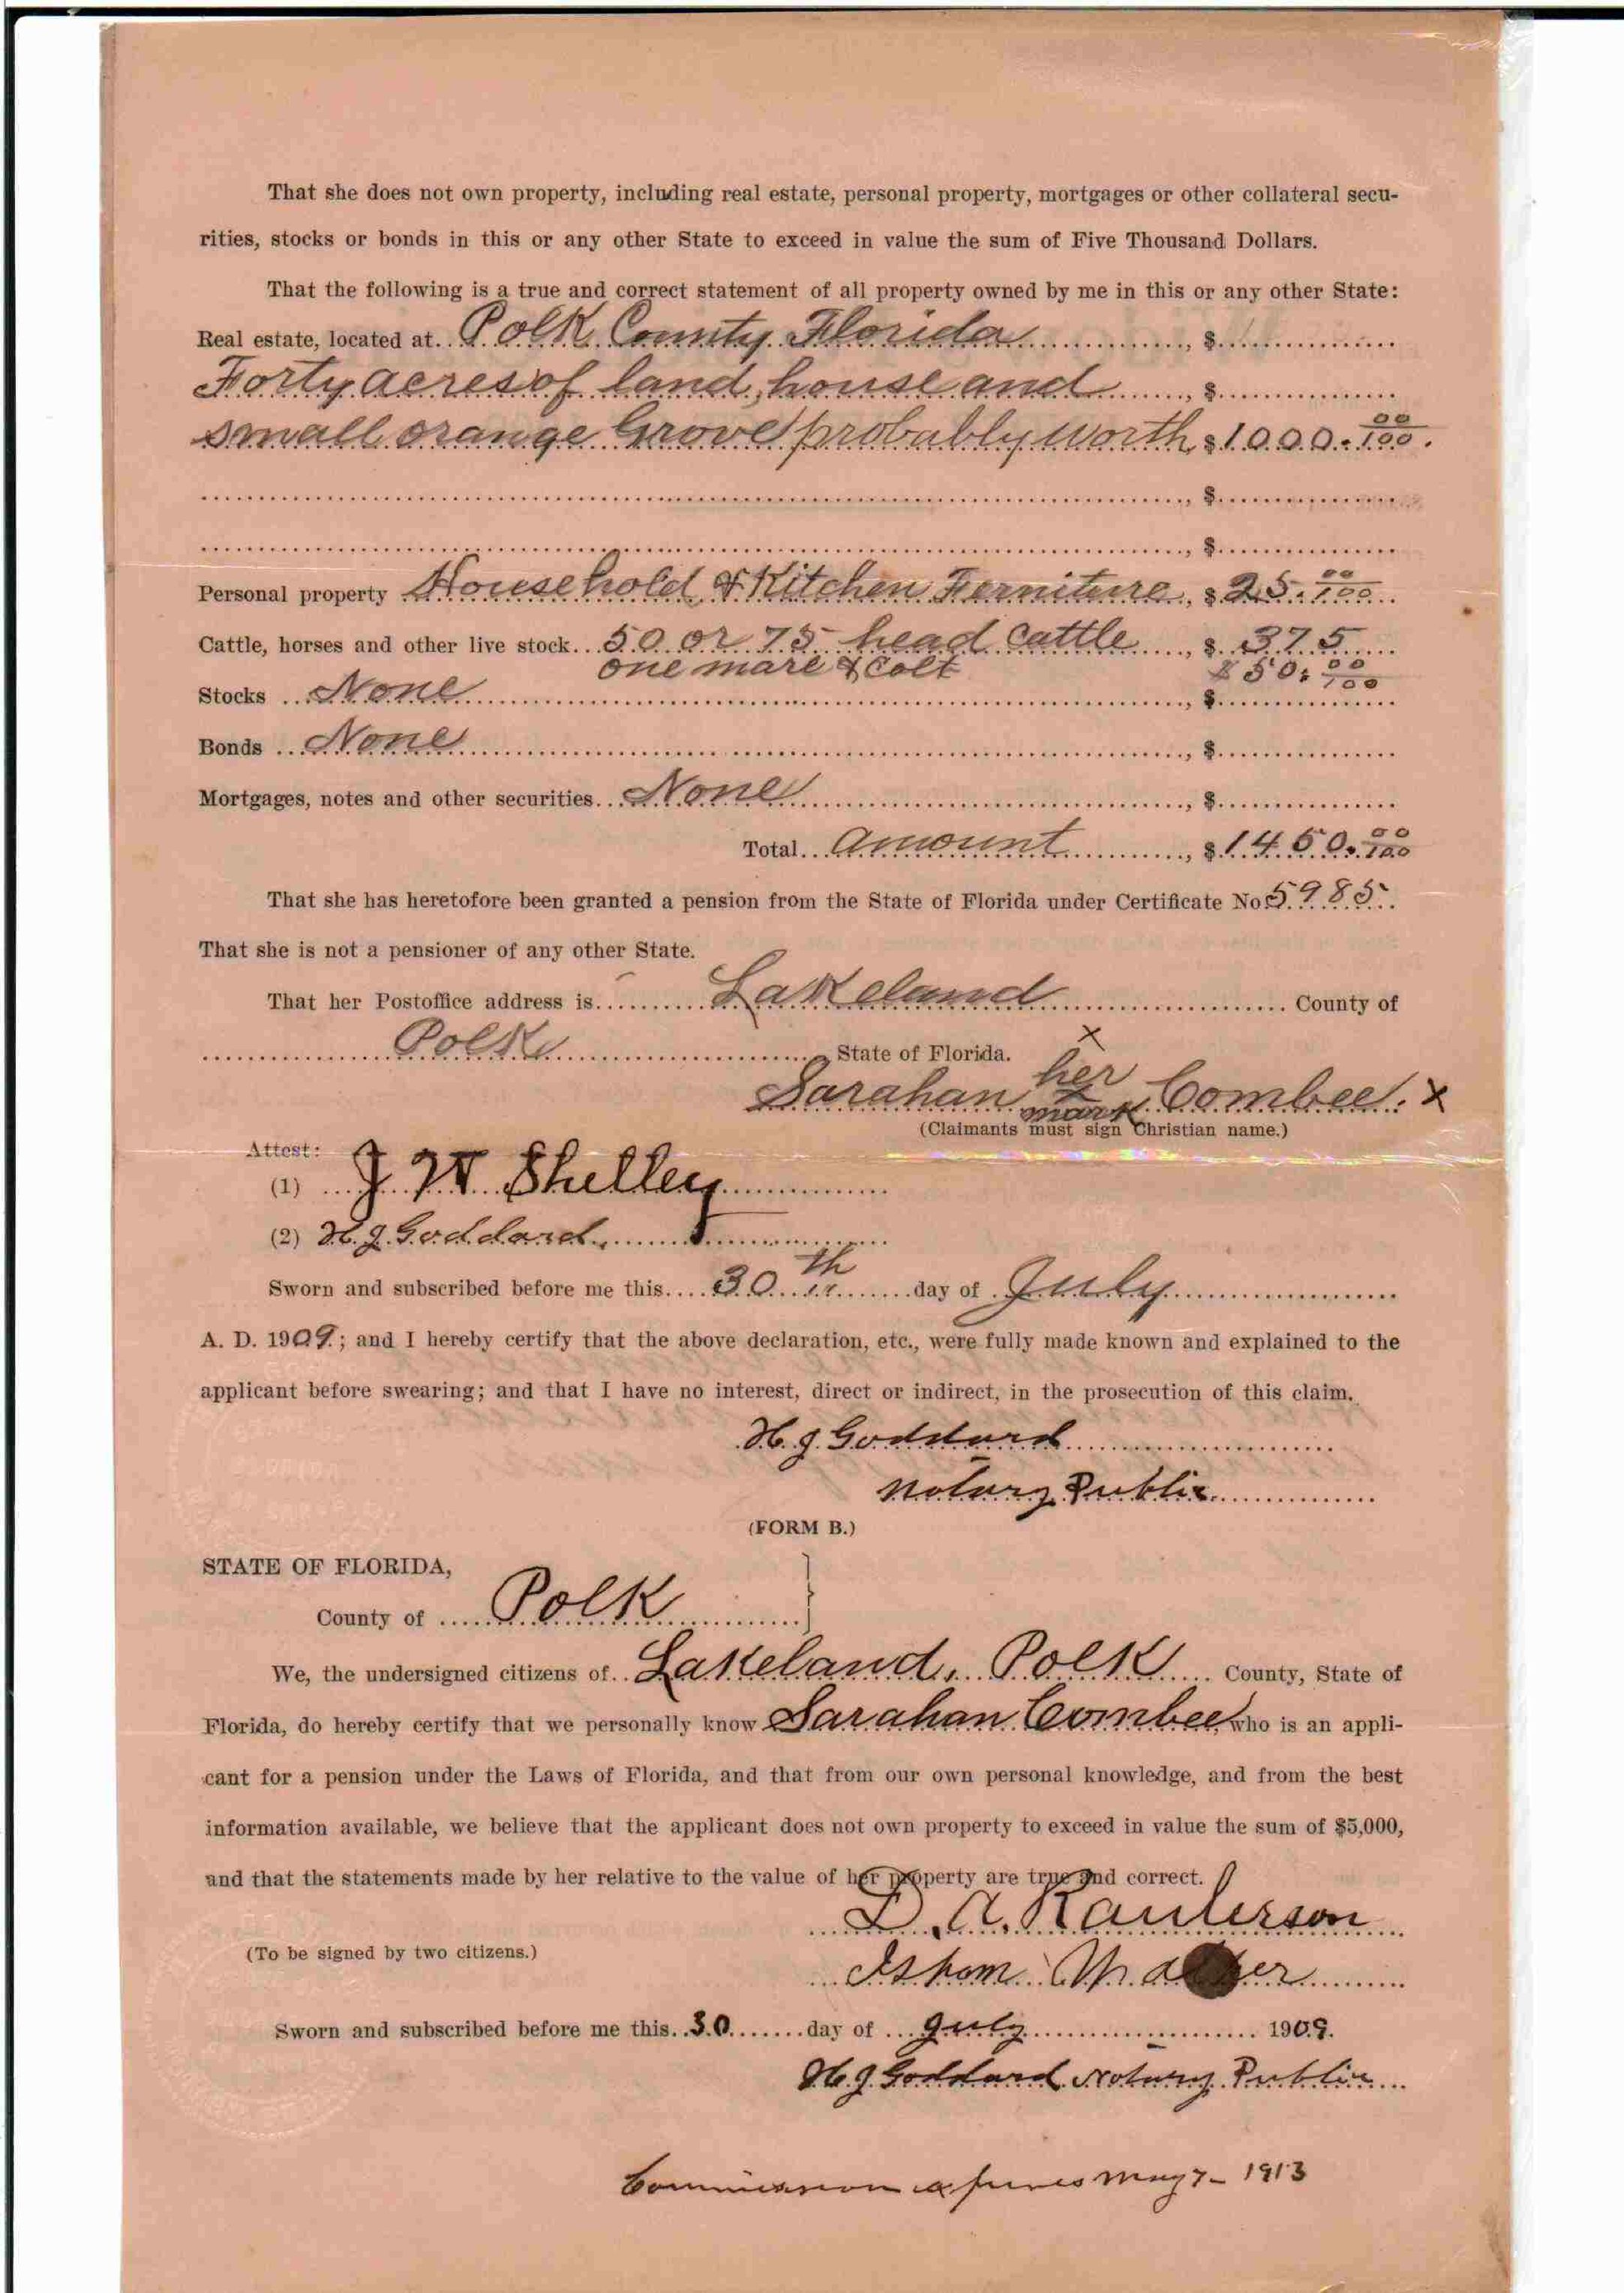 That she does not own property, including real estate, personal property, mortgages or other collateral secu-
rities, stocks or bonds in this or any other State to exceed in value the sum of Five Thousand Dollars.
That the following is a true and correct statement of all property owned by me in this or any other State:
Real estate, located at.. Polk County Florida ..........., $..............
Forty acres of land, house and ......, $..............
small orange Grove probably worth $1000.00/100.
..........................................................., $..............
..........................................................., $..............
Personal property Household & Kitchen Ferniture, $25.00/100..
Cattle, horses and other live stock... 50 or 75 head Cattle ....., $ 375
one mare & colt $50.00/100
Stocks ... None ..........................................., $..............
Bonds ... None ..........................................., $..............
Mortgages, notes and other securities... None ..................., $..............
Total... amount .........., $1450.00/100
That she has heretofore been granted a pension from the State of Florida under Certificate No 5985.
That she is not a pensioner of any other State.
That her Postoffice address is.......... Lakeland .................... County of
................ Polk ..................... State of Florida.
x
her
Sarahan x Combee. x
mark
(Claimants must sign Christian name.)
Attest:
(1) .... J. W. Shelley ..............
(2) H. J. Goddard, ..............
Sworn and subscribed before me this.... 30th ....... day of . July ....................
A. D. 1909.; and I hereby certify that the above declaration, etc., were fully made known and explained to the
applicant before swearing; and that I have no interest, direct or indirect, in the prosecution of this claim.
H. J. Goddard ......................
Notary Public ..............
(FORM B.)
STATE OF FLORIDA,
County of ..... Polk ............ }
We, the undersigned citizens of.. Lakeland, Polk .... County, State of
Florida, do hereby certify that we personally know Sarahan Combee who is an appli-
cant for a pension under the Laws of Florida, and that from our own personal knowledge, and from the best
information available, we believe that the applicant does not own property to exceed in value the sum of $5,000,
and that the statements made by her relative to the value of her property are true and correct.
... D. A. Raulerson ...
(To be signed by two citizens.)
... Isham ..........
Sworn and subscribed before me this.. 30 ....... day of ... July .................... 1909.
H. J. Goddard Notary Public ...
Commission expires May 7 - 1913